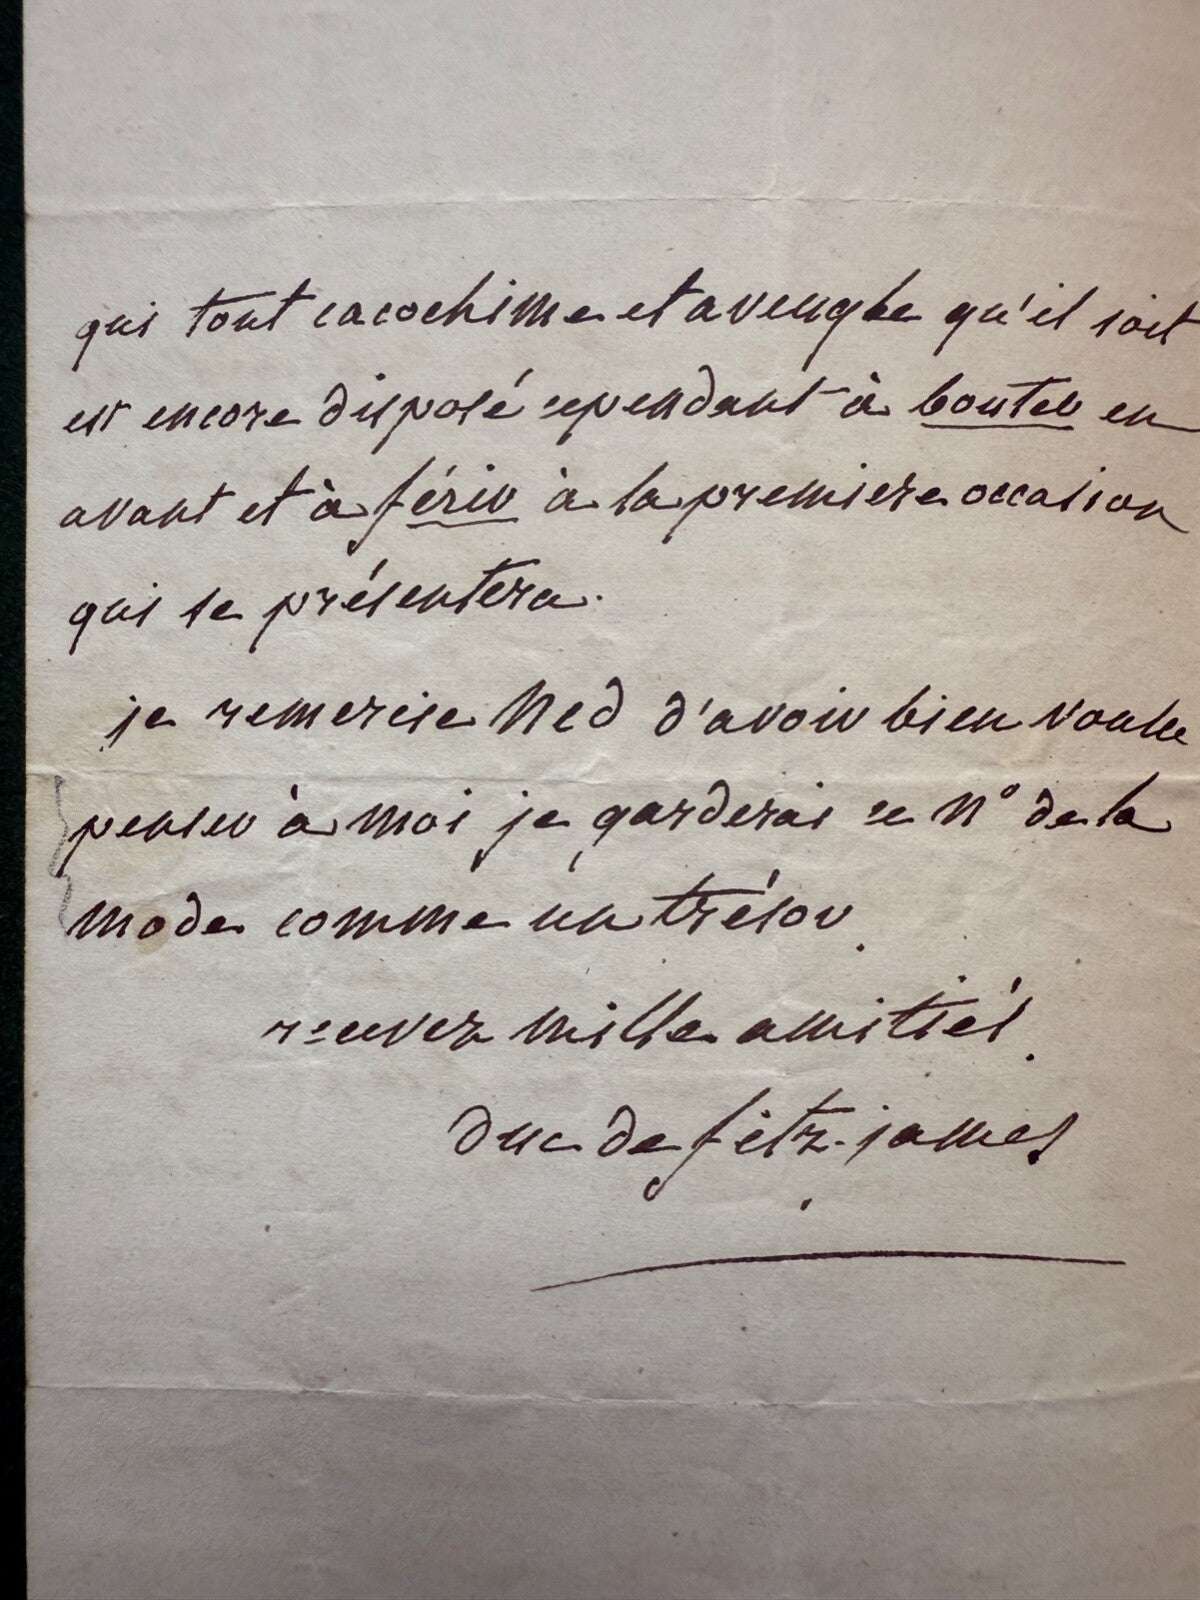 qui tout cacochime et aveugle qu'il soit
est encore disposé cependant à bouter en
avant et à férir à la premiere occasion
qui se présentera.
je remercie Ned d'avoir bien voulu
penser à moi je garderai ce N° de la
mode comme un trésor.
recevez mille amitiés.
duc de fitz-james